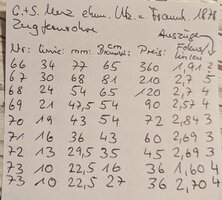 G. & S. Merz ehm. Utz. u. Fraunh. 1878
Zugfernrohre
Auszüge
Nr: Linie: mm: Dm Preis: Fokus
Linien
66 34 77 65 360 1,91 2
67 30 68 81 210 2,7 5
68 24 54 65 120 2,7 4
69 21 47,5 54 90 2,57 4
70 19 43 54 72 2,84 3
71 16 36 43 60 2,69 3
72 13 29,5 35 45 2,69 3
73 10 22,5 16 36 1,60 4
73 10 22,5 27 36 2,70 4